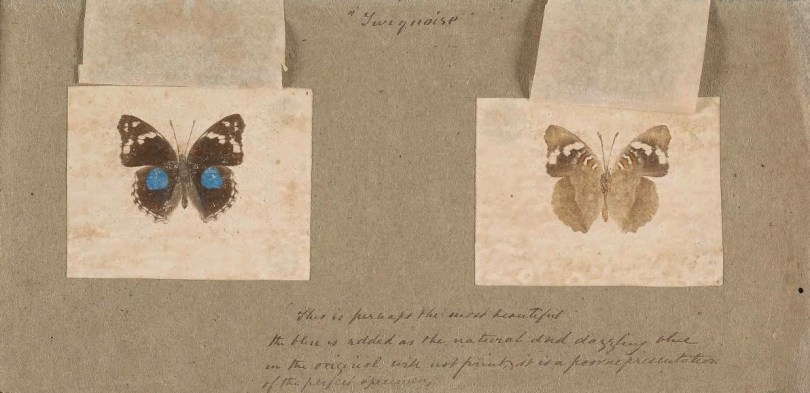 "Turquoise"
This is perhaps the most beautiful
the blue is added as the natural and dazzling blue
in the original will not print, it is a poor representation
of the perfect specimen,